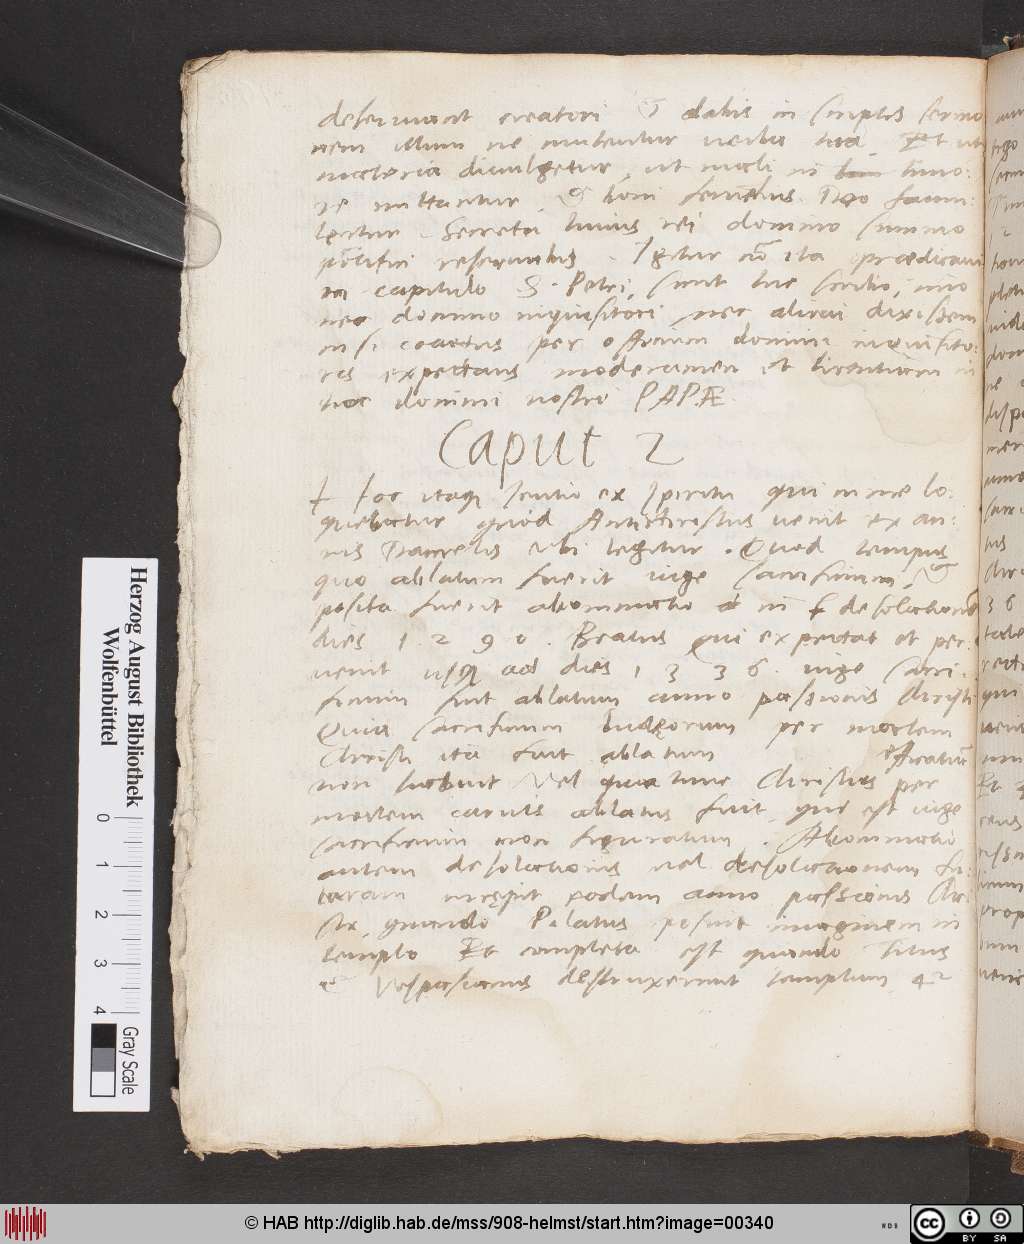 deseruant creatori & dabis in scriptis sermo
nem illum ne mutentur verba tua. Et ut
materia divulgetur, ut mali in timo-
re mittantur & boni Deo famu-
lentur. Secreta huius rei domino summo
reservabis. Igitur cū ita prædicavi
in capitulo S. Petri, sunt hæc scribo, imo
nec domino inquisitori nec alicui dixissem
nisi coactus per officium domini inquisito-
ris expectans moderamen et licentiam in
hoc domini nostri PAPÆ.
Caput 2
Hoc itaq sentio ex spiritu qui in me lo-
quebatur quod Antichristus venit ex an-
nis Danielis ubi legitur. Quod tempus
quo ablatum fuerit iuge sacrificium &
posita fuerit abominatio in desolationē
dies 1 2 9 0. Beatus qui expectat et per-
venit usq ad dies 1 3 3 6. iuge sacri-
ficium fuit ablatum anno passionis Christi
Quia sacrificium Iudæorum per mortem
Christi ita fuit ablatum efficatiā
non habuit Vel quia tunc Christus per
mortem carnis ablatus fuit, que est iuge
sacrificium non figuratum. Abominatio
autem desolationis vel desolationem fu-
turam incępit eodem anno passionis Chri
sti, quando Pilatus posuit imaginem in
templo Et completa est quando Titus
& Vespasianus destruxerunt templum 42
Herzog August Bibliothek
Wolfenbüttel
0 1 2 3 4
Gray Scale
© HAB http://diglib.hab.de/mss/908-helmst/start.htm?image=00340
WDB
cc BY SA